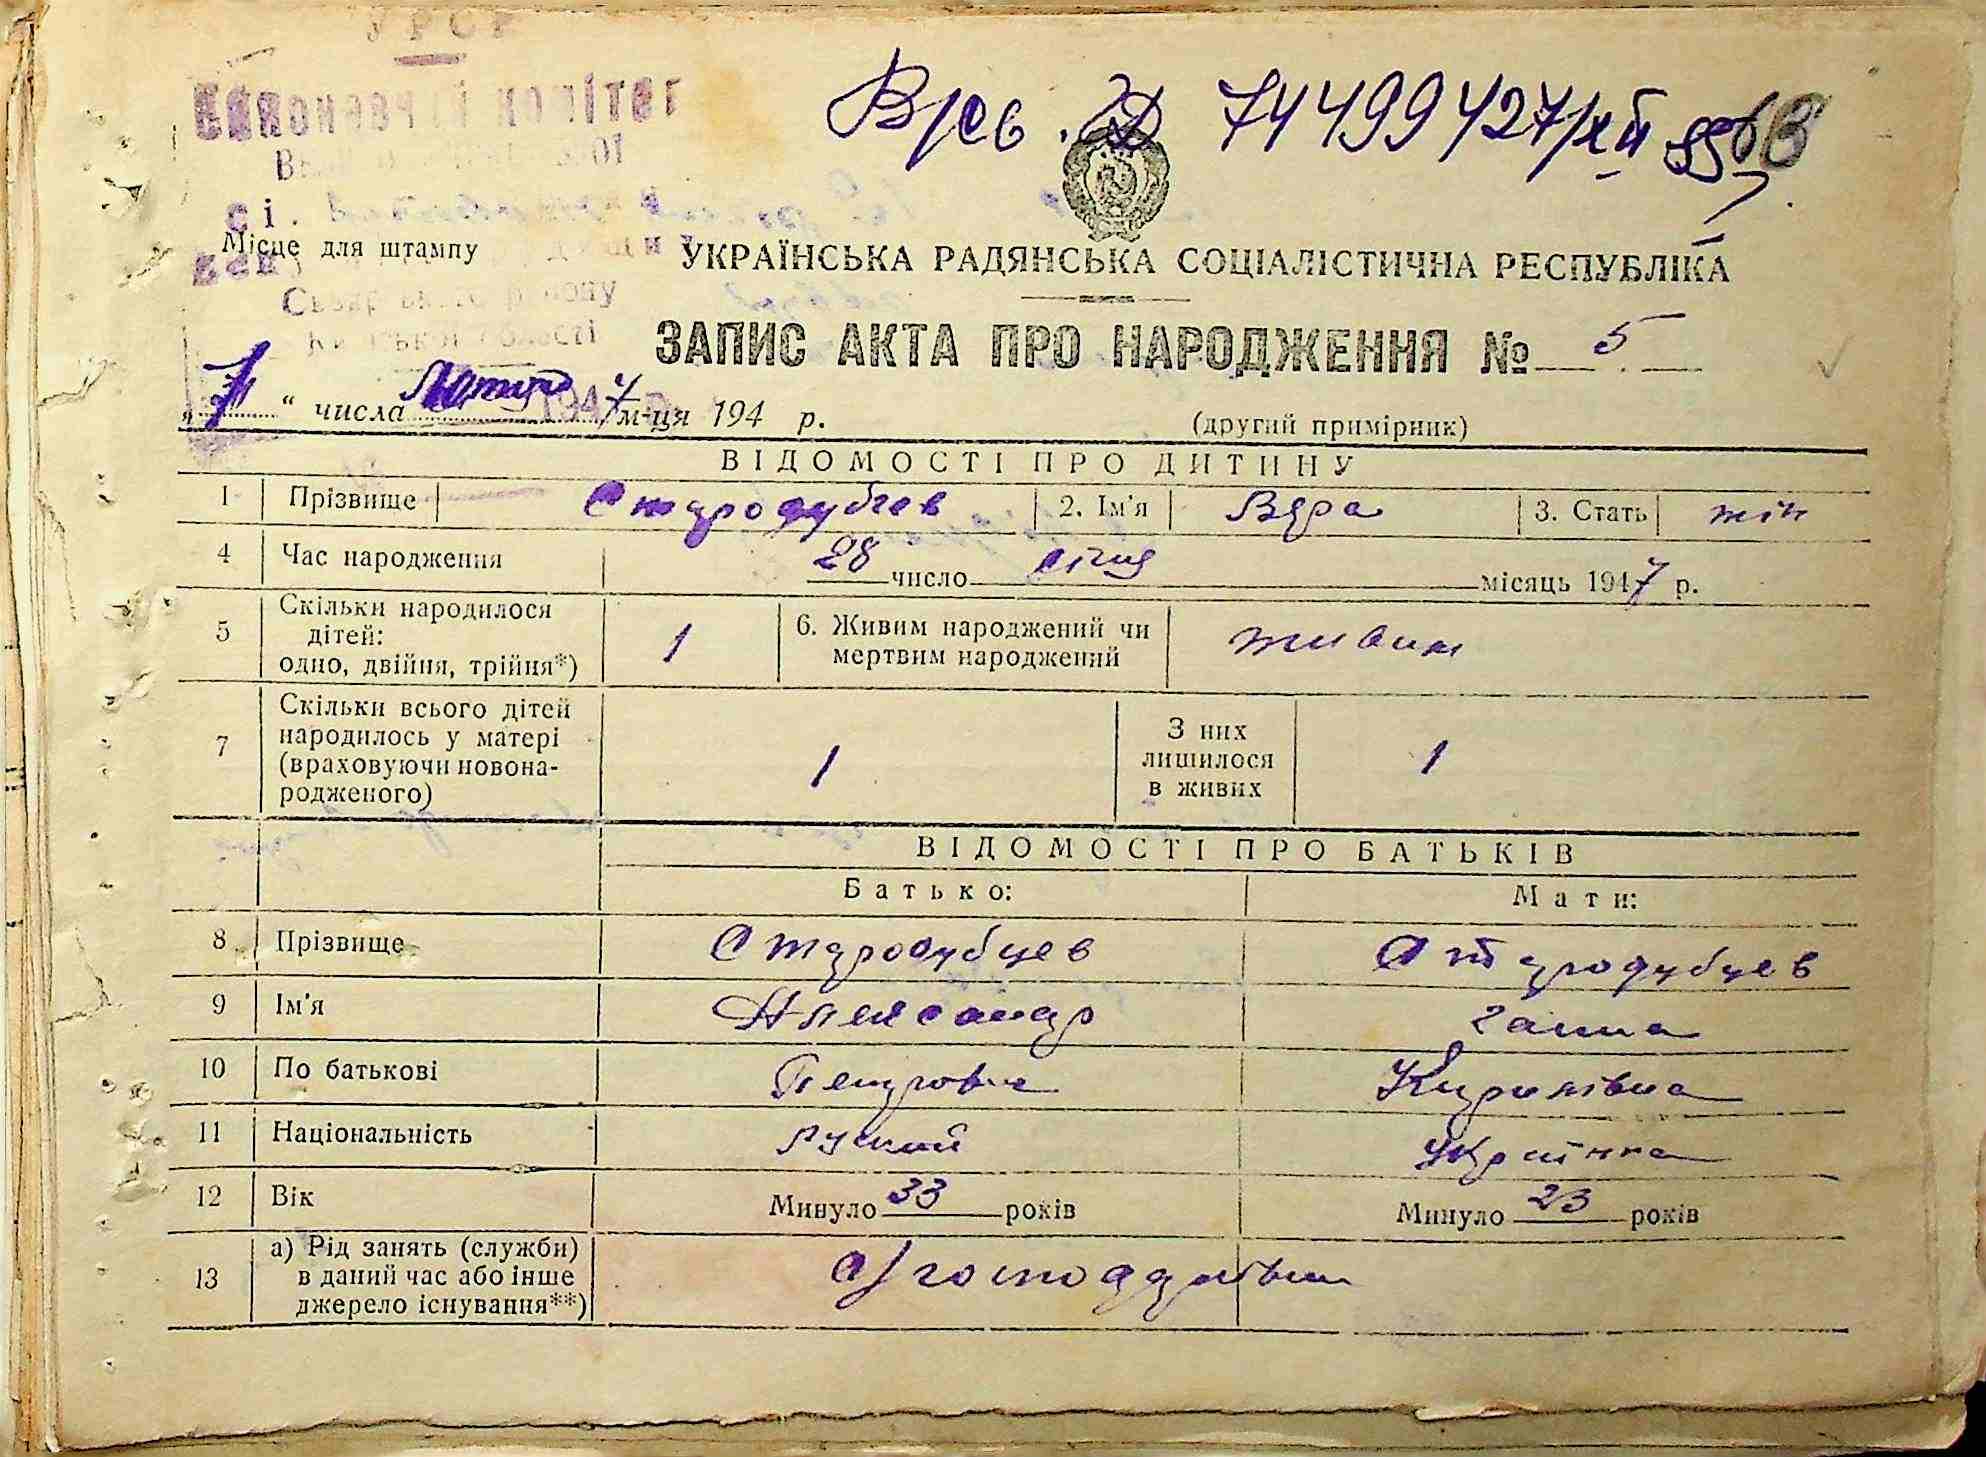 УРСР
Виконавчий комітет
сі
Місце для штампу
району
області
74499427
УКРАЇНСЬКА РАДЯНСЬКА СОЦІАЛІСТИЧНА РЕСПУБЛІКА
ЗАПИС АКТА ПРО НАРОДЖЕННЯ № 5
„ 7 “ числа Лютого м-ця 1947 р.
(другий примірник)
ВІДОМОСТІ ПРО ДИТИНУ
1 Прізвище Стародубцев 2. Ім'я Вера 3. Стать жін
4 Час народження 28 число січня місяць 1947 р.
5 Скільки народилося дітей: одно, двійня, трійня*) 1 6. Живим народжений чи мертвим народжений живим
7 Скільки всього дітей народилось у матері (враховуючи новонародженого) 1 З них лишилося в живих 1
ВІДОМОСТІ ПРО БАТЬКІВ
Батько: Мати:
8 Прізвище Стародубцев Стародубцев
9 Ім'я Александр Ганна
10 По батькові Петрович Кирилівна
11 Національність Руский Українка
12 Вік Минуло 33 років Минуло 23 років
13 а) Рід занять (служби) в даний час або інше джерело існування**)